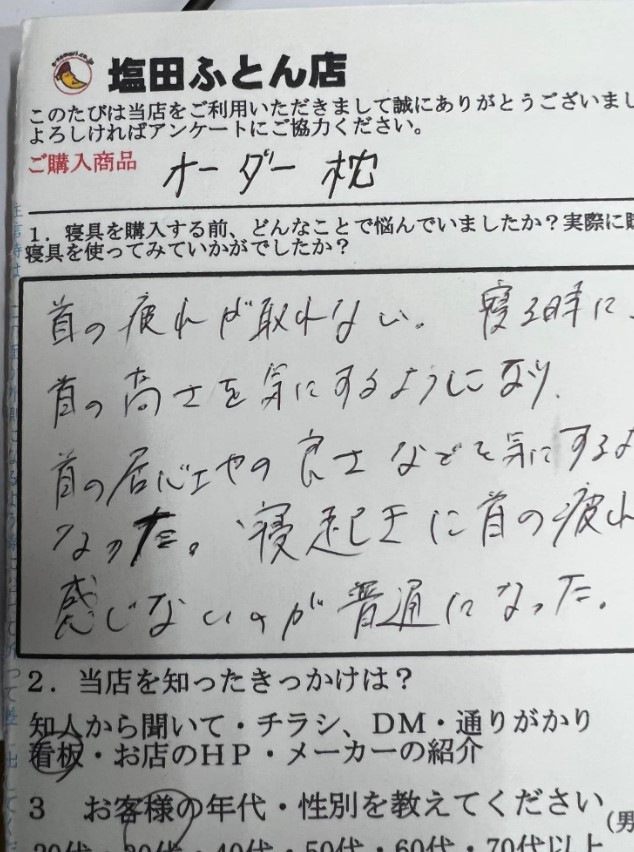 塩田ふとん店
このたびは当店をご利用いただきまして誠にありがとうございまし
よろしければアンケートにご協力ください。
ご購入商品 オーダー枕
1．寝具を購入する前、どんなことで悩んでいましたか？実際に
寝具を使ってみていかがでしたか？
首の疲れが取れない。 寝る時に、
首の高さを気にするようになり、
首の居心エやの良さなどを気にするよ
なった。 寝起きに首の疲れ
感じないのが普通になった。
2．当店を知ったきっかけは？
知人から聞いて・チラシ、DM・通りがかり
看板・お店のHP・メーカーの紹介
3 お客様の年代・性別を教えてください
(男
20代・30代・40代・50代・60代・70代以上